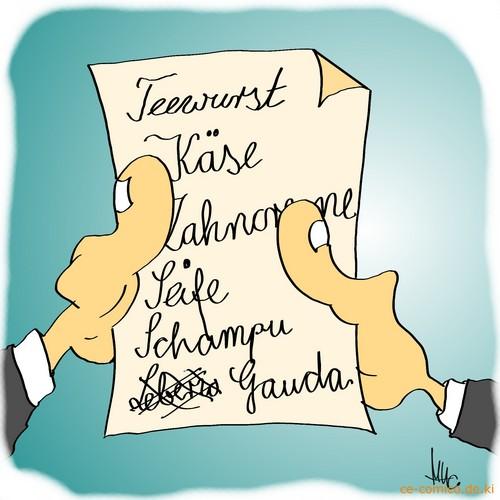 Teewurst
Käse
Zahncreme
Seife
Schampu
Gauda
ce-comico.do.ki